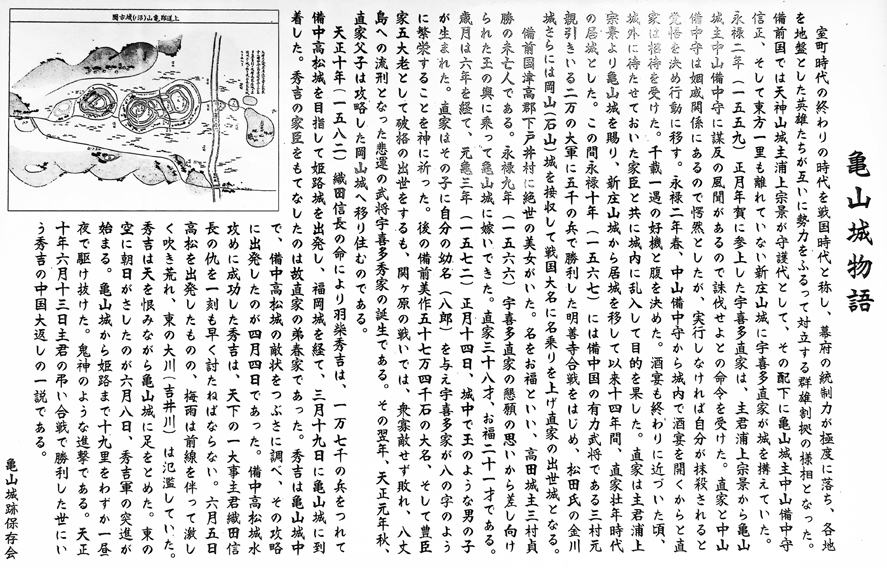 亀山城物語
室町時代の終わりの時代を戦国時代と称し、幕府の統制力が極度に落ち、各地
を地盤とした英雄たちが互いに勢力をふるって対立する群雄割拠の様相となった。
備前国では天神山城主浦上宗景が守護代として、その配下に亀山城主中山備中守
信正、そして東方一里も離れていない新庄山城に宇喜多直家が城を構えていた。
永禄二年（一五五九）正月年賀に参上した宇喜多直家は、主君浦上宗景から亀山
城主中山備中守に謀反の風聞があるので誅伐せよとの命令を受けた。直家と中山
備中守は姻戚関係にあるので愕然としたが、実行しなければ自分が抹殺されると
覚悟を決め行動に移す。永禄二年春、中山備中守から城内で酒宴を開くからと直
家は招待を受けた。千載一遇の好機と腹を決めた。酒宴も終わりに近づいた頃、
城外に待たせておいた家臣と共に城内に乱入して目的を果した。直家は主君浦上
宗景より亀山城を賜り、新庄山城から居城を移して以来十四年間、直家壮年時代
の居城とした。この間永禄十年（一五六七）には備中国の有力武将である三村元
親引きいる二万の大軍に五千の兵で勝利した明善寺合戦をはじめ、松田氏の金川
城さらには岡山（石山）城を接収して戦国大名に名乗りを上げ直家の出世城となる。
備前国津高郡下土井村に絶世の美女がいた。名をお福といい、高田城主三村貞
勝の未亡人である。永禄九年（一五六六）宇喜多直家の懇願の思いから差し向け
られた玉の輿に乗って亀山城に嫁いできた。直家三十八才、お福二十一才である。
歳月は六年を経て、元亀三年（一五七二）正月十四日、城中で玉のような男の子
が生まれた。直家はその子に自分の幼名（八郎）を与え宇喜多家が八の字のよう
に繁栄することを神に祈った。後の備前美作五十七万四千石の大名、そして豊臣
家五大老として破格の出世をするも、関ヶ原の戦いでは、衆寡敵せず敗れ、八丈
島への流刑となった悲運の武将宇喜多秀家の誕生である。その翌年、天正元年秋、
直家父子は攻略した岡山城へ移り住むのである。
天正十年（一五八二）織田信長の命により羽柴秀吉は、一万七千の兵をつれて
備中高松城を目指して姫路城を出発し、福岡城を経て、三月十九日に亀山城に到
着した。秀吉の家臣をもてなしたのは故直家の弟春家であった。秀吉は亀山城中
で、備中高松城の敵状をつぶさに調べ、その攻略
に出発したのが四月四日であった。備中高松城水
攻めに成功した秀吉は、天下の一大事主君織田信
長の仇を一刻も早く討たねばならない。六月五日
高松を出発したものの、梅雨は前線を伴って激し
く吹き荒れ、東の大川（吉井川）は氾濫していた。
秀吉は天を恨みながら亀山城に足をとめた。東の
空に朝日がさしたのが六月八日、秀吉軍の突進が
始まる。亀山城から姫路まで十九里をわずか一昼
夜で駆け抜けた。鬼神のような進撃である。天正
十年六月十三日主君の弔い合戦で勝利した世にい
う秀吉の中国大返しの一説である。
亀山城跡保存会